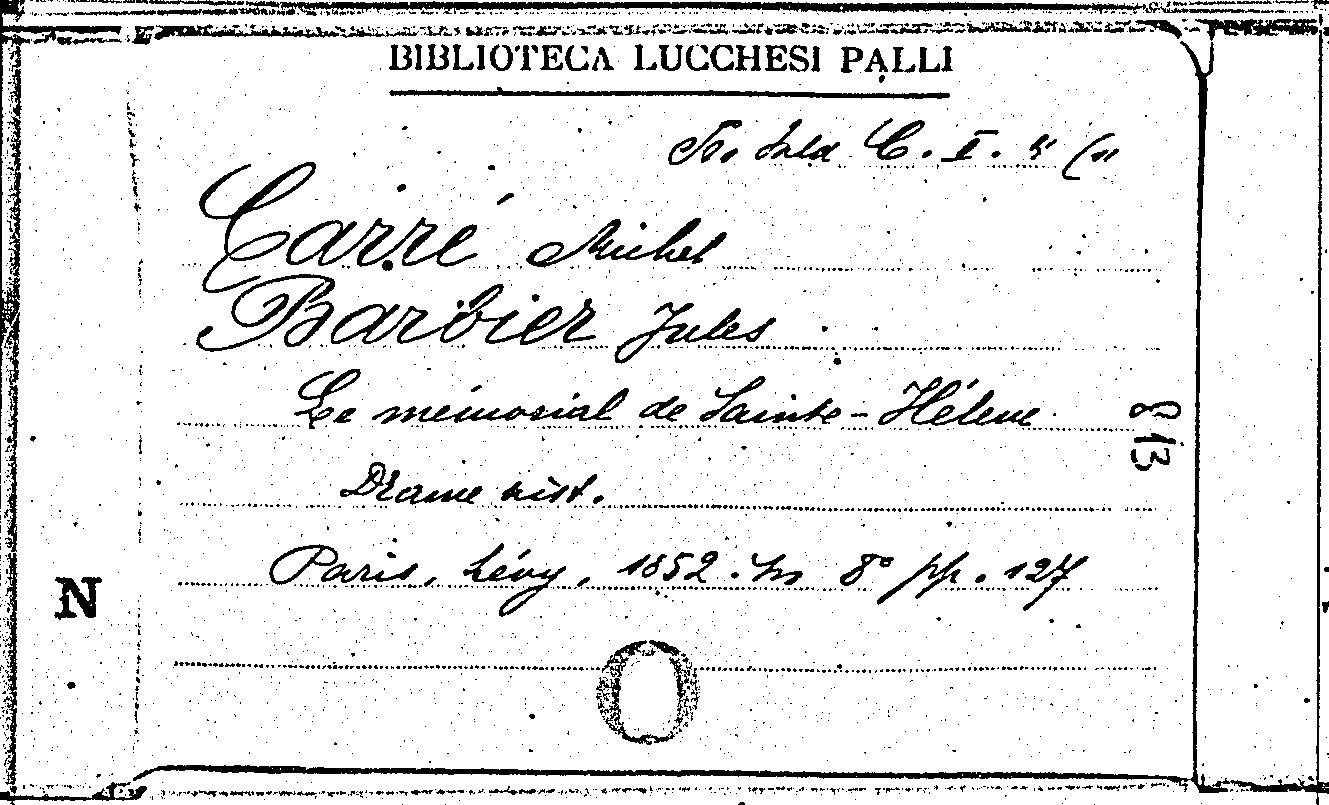 BIBLIOTECA LUCCHESI PALLI
C. I.
Carré Michel
Barbier Jules
Le mémorial de Sainte-Hélène
813
Drame hist.
Paris, Lévy, 1852. In 8° pp. 127
N